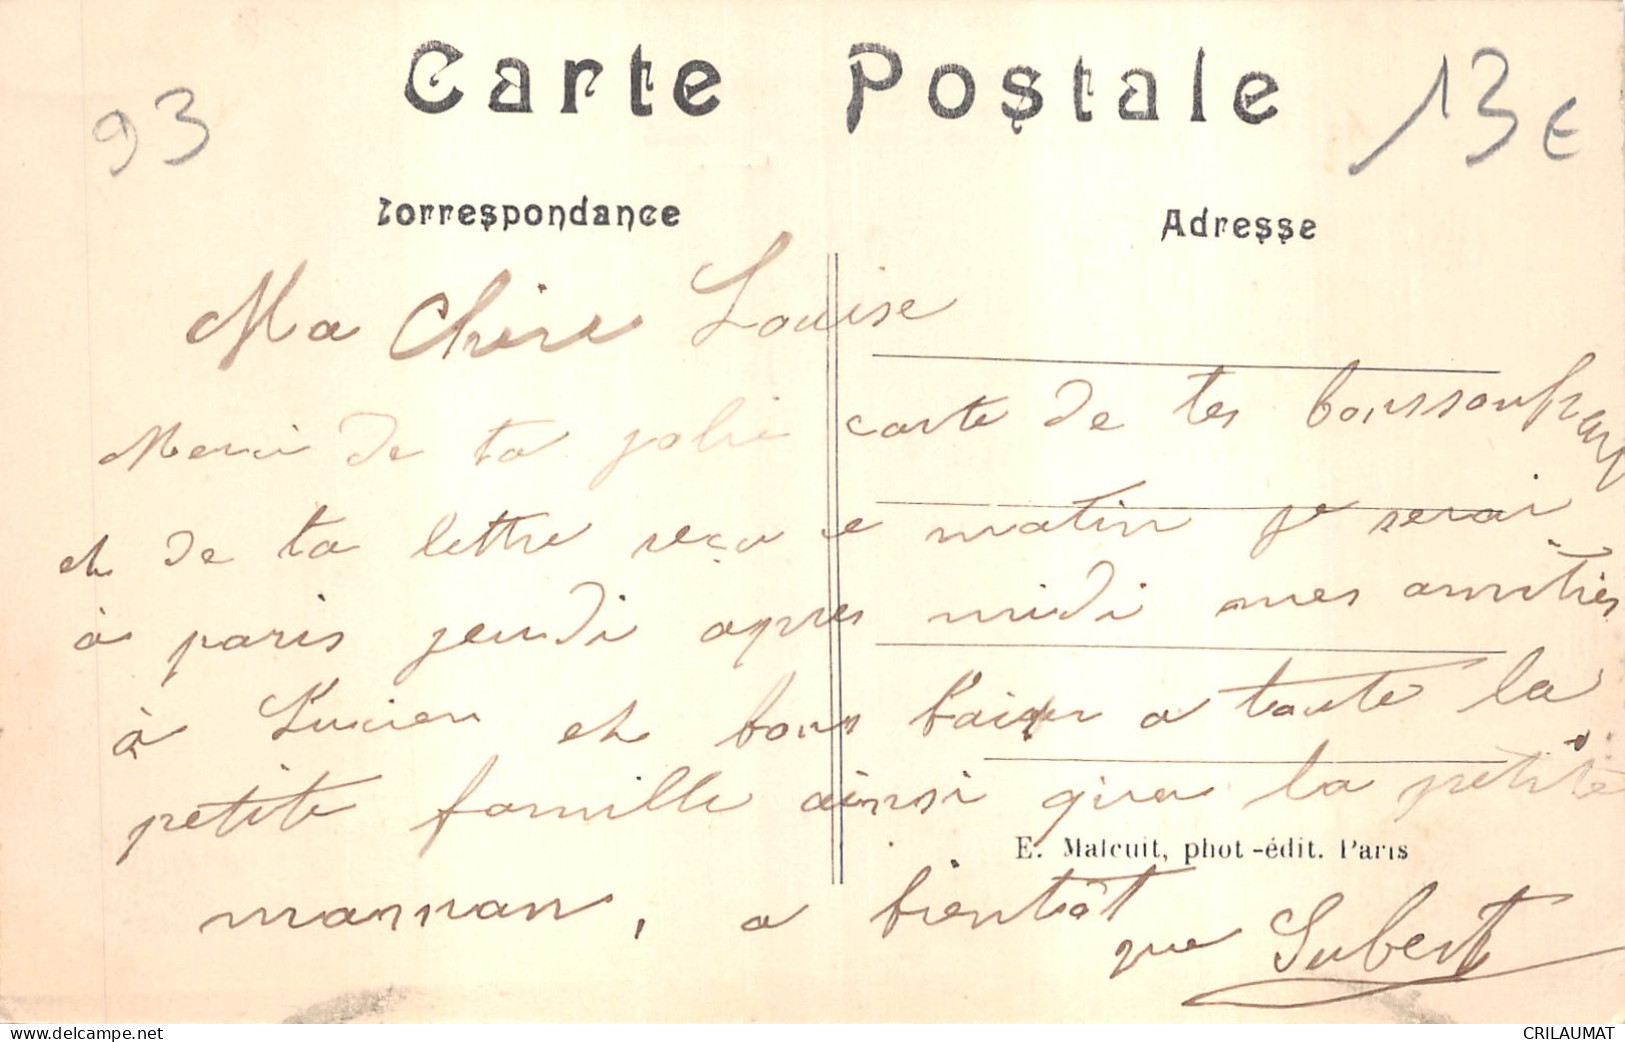 Carte Postale
93
13 €
Correspondance
Adresse
Ma Chère Louise
Merci de ta jolie carte de tes
et de ta lettre reçu ce matin je serai
à paris jeudi apres midi mes amitiés
à Lucien et bons baiser a toute la
petite famille ainsi que la petite
maman, a bientôt
que
E. Malcuit, phot-édit. Paris
CRILAUMAT